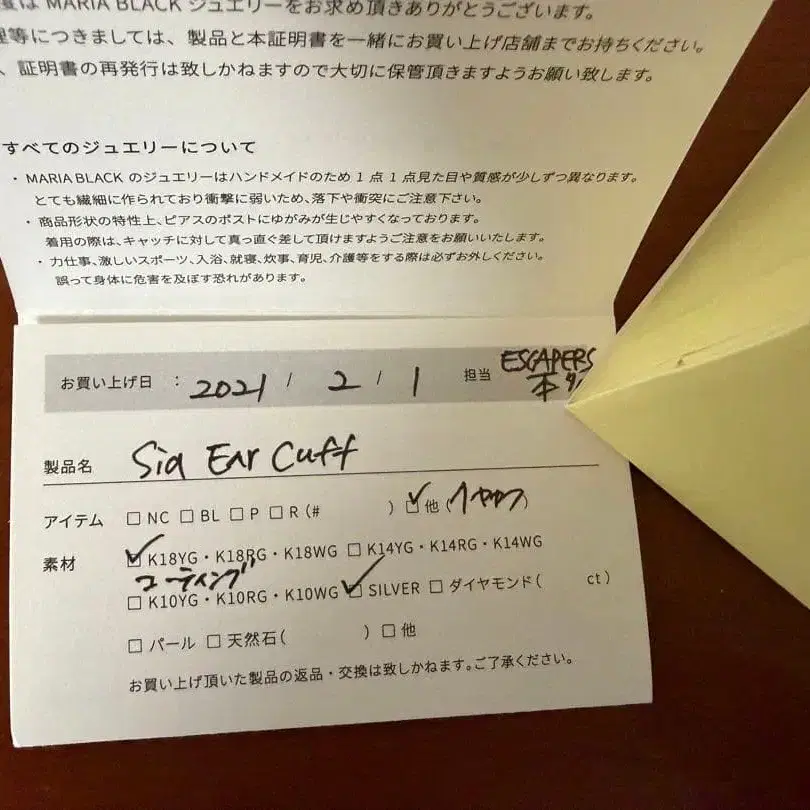 は MARIA BLACK ジュエリーをお求め頂きありがとうございます。
理等につきましては、製品と本証明書を一緒にお買い上げ店舗までお持ちください。
、証明書の再発行は致しかねますので大切に保管頂きますようお願い致します。
すべてのジュエリーについて
・MARIA BLACK のジュエリーはハンドメイドのため 1 点 1 点見た目や質感が少しずつ異なります。
とても繊細に作られており衝撃に弱いため、落下や衝突にご注意下さい。
・商品形状の特性上、ピアスのポストにゆがみが生じやすくなっております。
着用の際は、キャッチに対して真っ直ぐ差して頂けますようご注意をお願いいたします。
・力仕事、激しいスポーツ、入浴、就寝、炊事、育児、介護等をする際は必ずお外しください。
誤って身体に危害を及ぼす恐れがあります。
お買い上げ日 : 2021 / 2 / 1 担当 ESCAPERS
本
製品名 Sia Ear Cuff
アイテム □ NC □ BL □ P □ R (# ) ☑ 他 (イヤカフ)
素材 ☑ K18YG・K18RG・K18WG □ K14YG・K14RG・K14WG
コーティング
□ K10YG・K10RG・K10WG ☑ SILVER □ ダイヤモンド( ct)
□ パール □ 天然石( ) □ 他
お買い上げ頂いた製品の返品・交換は致しかねます。ご了承ください。